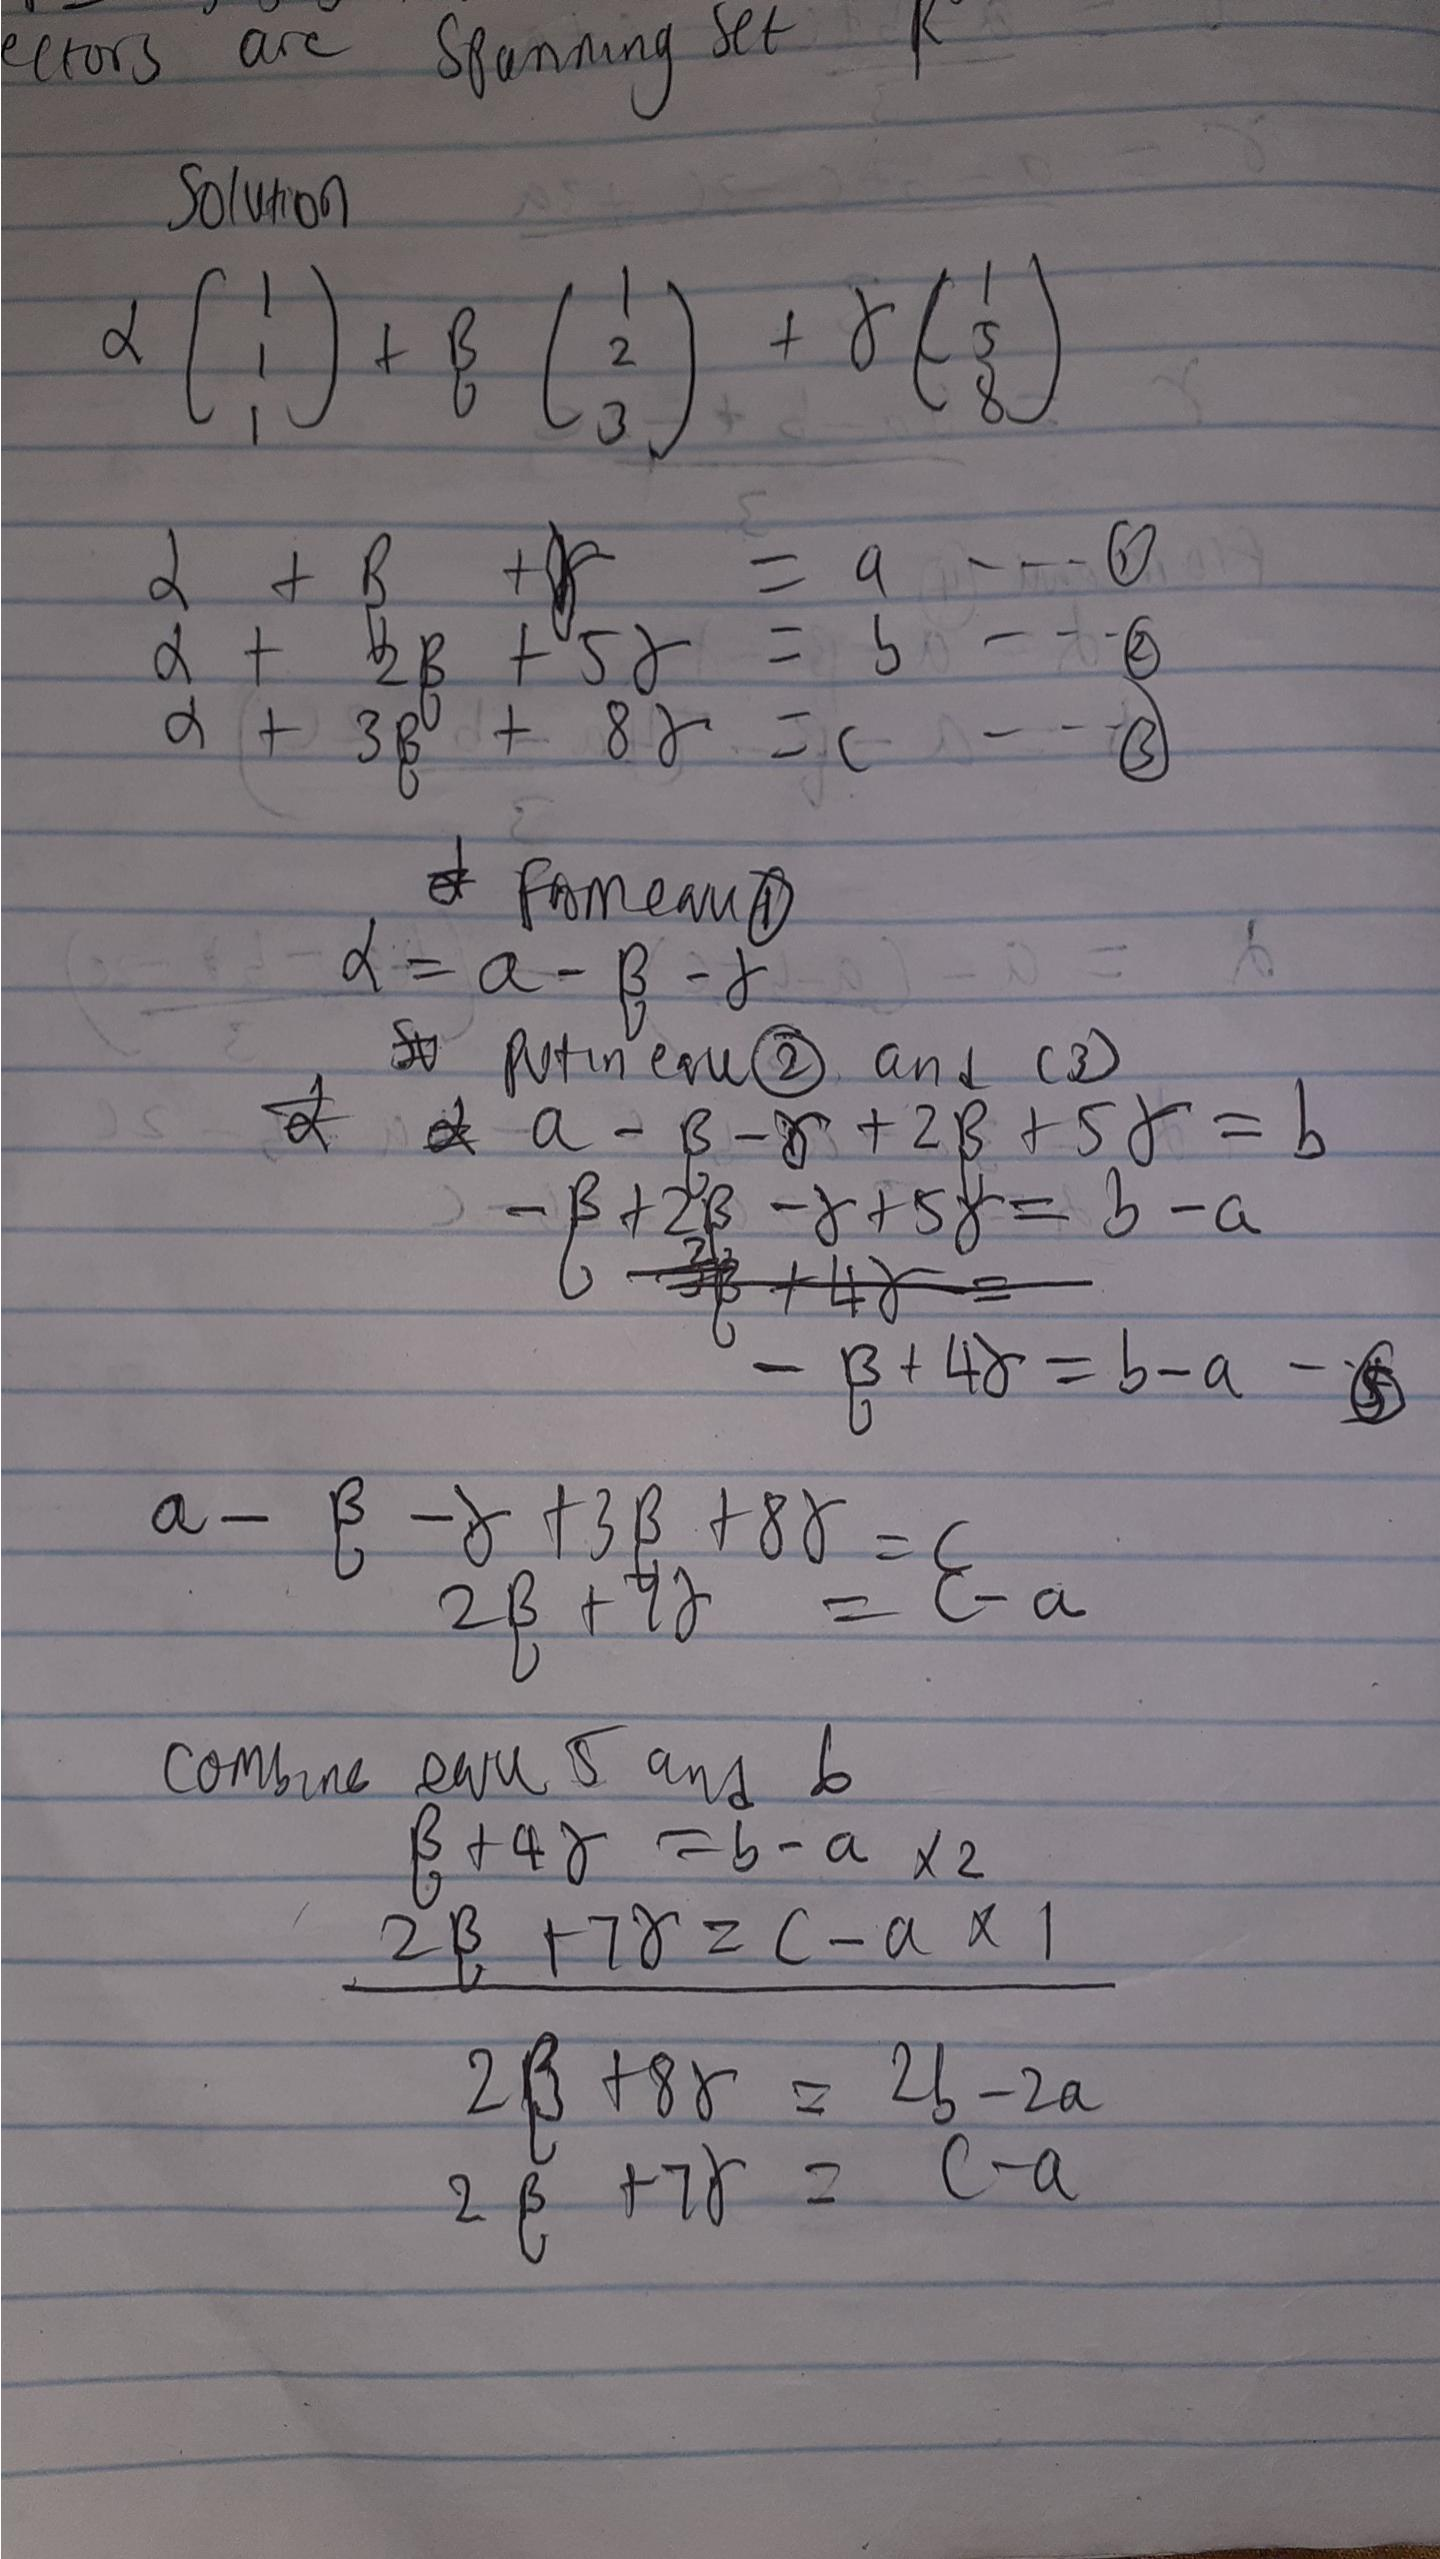 ectors are Spanning Set R
Solution
α ( 1 1 1 ) + β ( 1 2 3 ) + γ ( 1 5 8 )
α + β + γ = a ---- ①
α + 2β + 5γ = b ---- ②
α + 3β + 8γ = c ---- ③
From equ ①
α = a - β - γ
Put in equ ② and (3)
a - β - γ + 2β + 5γ = b
- β + 2β - γ + 5γ = b - a
+ 4γ =
- β + 4γ = b - a - ⑤
a - β - γ + 3β + 8γ = c
2β + 7γ = c - a
Combine equ 5 and b
β + 4γ = b - a × 2
2β + 7γ = c - a × 1
2β + 8γ = 2b - 2a
2β + 7γ = c - a